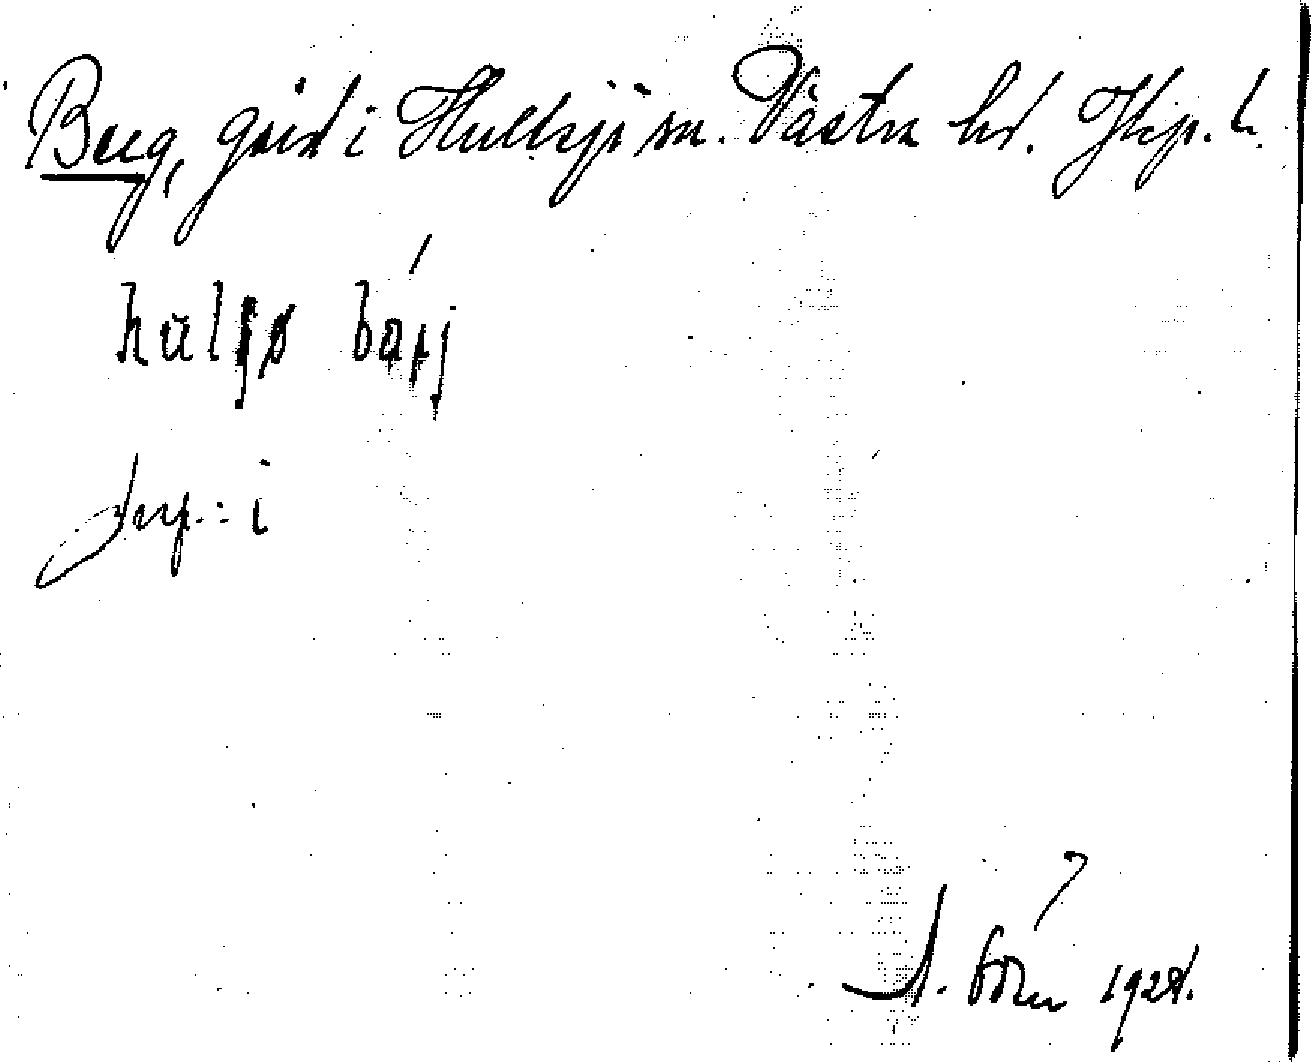 Berg, gård i Hultsjö sn. Västra hd. Jkp. l.
hulʃø bárj
prep.: i
1924.